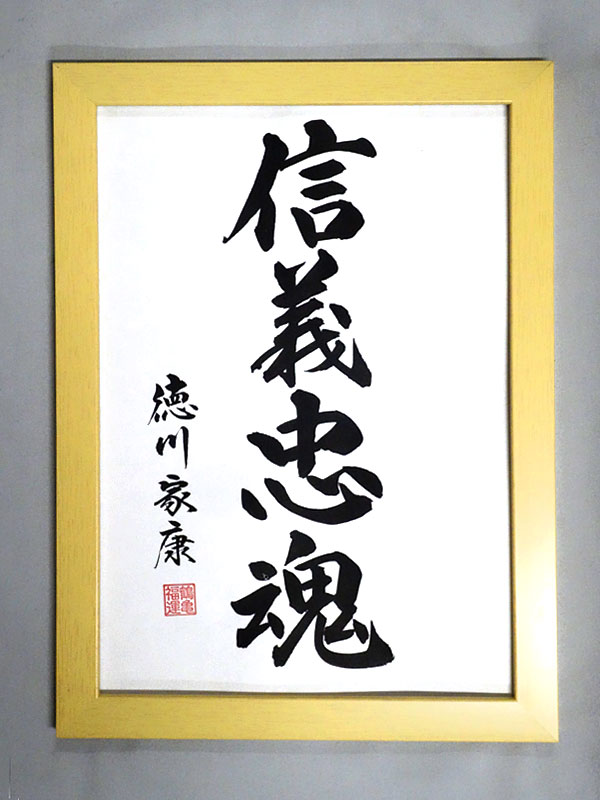 信義忠魂
徳川家康
鶴亀
福運